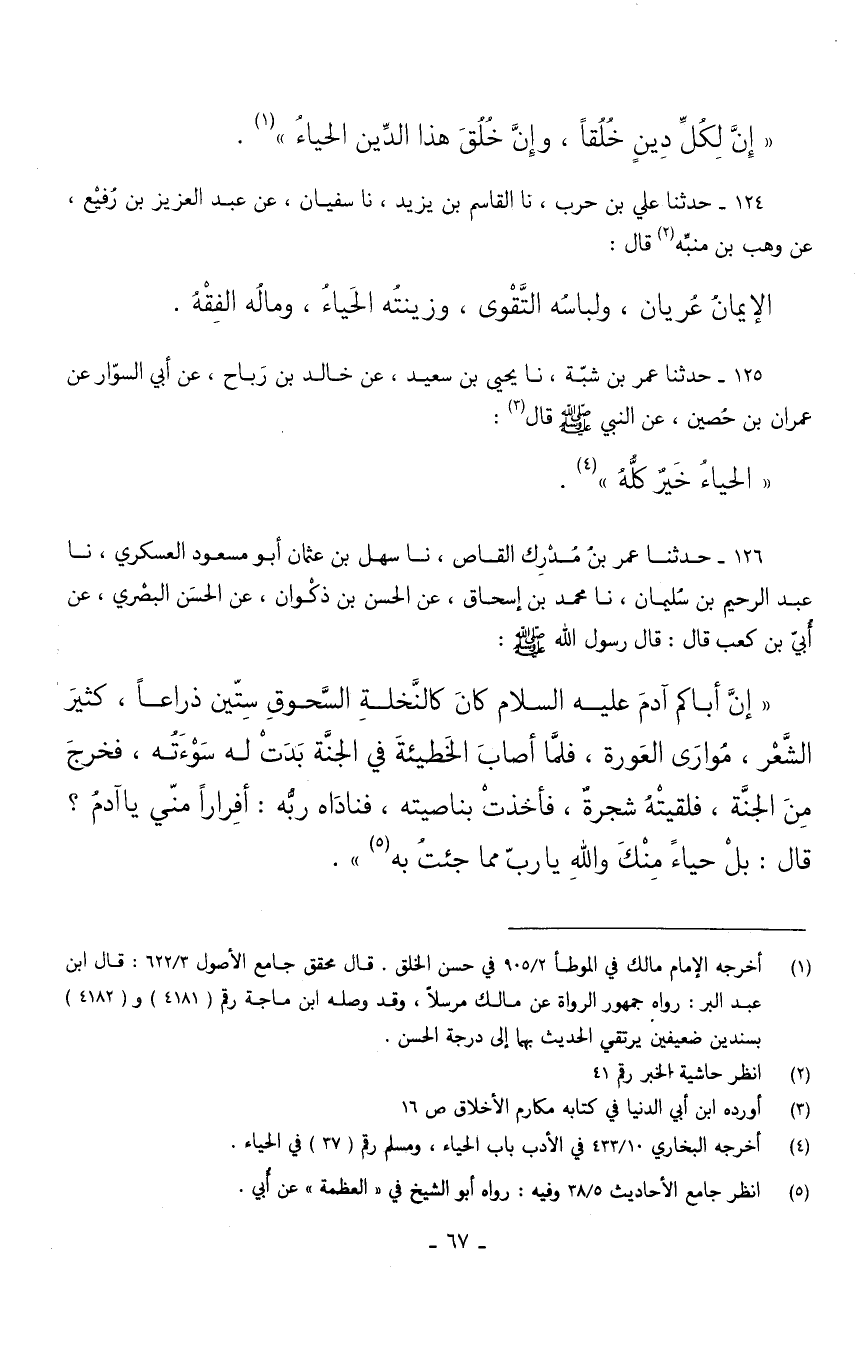 « إِنَّ لِكُلِّ دِينٍ خُلُقاً ، وإِنَّ خُلُقَ هذا الدِّين الحياءُ »(١) .
١٢٤ ـ حدثنا علي بن حرب ، نا القاسم بن يزيد ، نا سفيان ، عن عبد العزيز بن رُفيْع ،
عن وهب بن منبّه(٢) قال :
الإيمانُ عُريان ، ولباسُه التَّقْوى ، وزينتُه الحَياءُ ، ومالُه الفِقْهُ .
١٢٥ ـ حدثنا عمر بن شبّة ، نا يحيى بن سعيد ، عن خالد بن رَباح ، عن أبي السوّار عن
عمران بن حُصين ، عن النبي ﷺ قال(٣) :
« الحياءُ خَيرٌ كلُّهُ »(٤) .
١٢٦ ـ حدثنا عمر بنُ مُدْرِك القاص ، نا سهل بن عثمان أبو مسعود العسكري ، نا
عبد الرحيم بن سُليمان ، نا محمد بن إسحاق ، عن الحسن بن ذكْوان ، عن الحسَن البصْري ، عن
أُبيّ بن كعب قال : قال رسول الله ﷺ :
« إنَّ أباكم آدمَ عليه السلام كانَ كالنَّخلةِ السَّحوقِ ستّين ذراعاً ، كثيرَ
الشَّعْر ، مُوارَى العَورة ، فلمَّا أصابَ الخَطيئةَ في الجنَّة بَدَتْ له سَوْءَتُه ، فخرجَ
مِنَ الجنَّة ، فلقيتْهُ شجرةٌ ، فأخذتْ بناصيته ، فنادَاه ربُّه : أفِراراً منّي ياآدمُ ؟
قال : بلْ حياءً مِنْكَ واللهِ ياربّ مما جئتُ به(٥) » .
(١) أخرجه الإمام مالك في الموطأ ٩٠٥/٢ في حسن الخلق . قال محقق جامع الأصول ٦٢٢/٣ : قال ابن
عبد البر : رواه جمهور الرواة عن مالك مرسلاً ، وقد وصله ابن ماجة رقم ( ٤١٨١ ) و ( ٤١٨٢ )
بسندين ضعيفين يرتقي الحديث بها إلى درجة الحسن .
(٢) انظر حاشية الخبر رقم ٤١
(٣) أورده ابن أبي الدنيا في كتابه مكارم الأخلاق ص ١٦
(٤) أخرجه البخاري ٤٣٣/١٠ في الأدب باب الحياء ، ومسلم رقم ( ٣٧ ) في الحياء .
(٥) انظر جامع الأحاديث ٣٨/٥ وفيه : رواه أبو الشيخ في « العظمة » عن أُبي .
ـ ٦٧ ـ